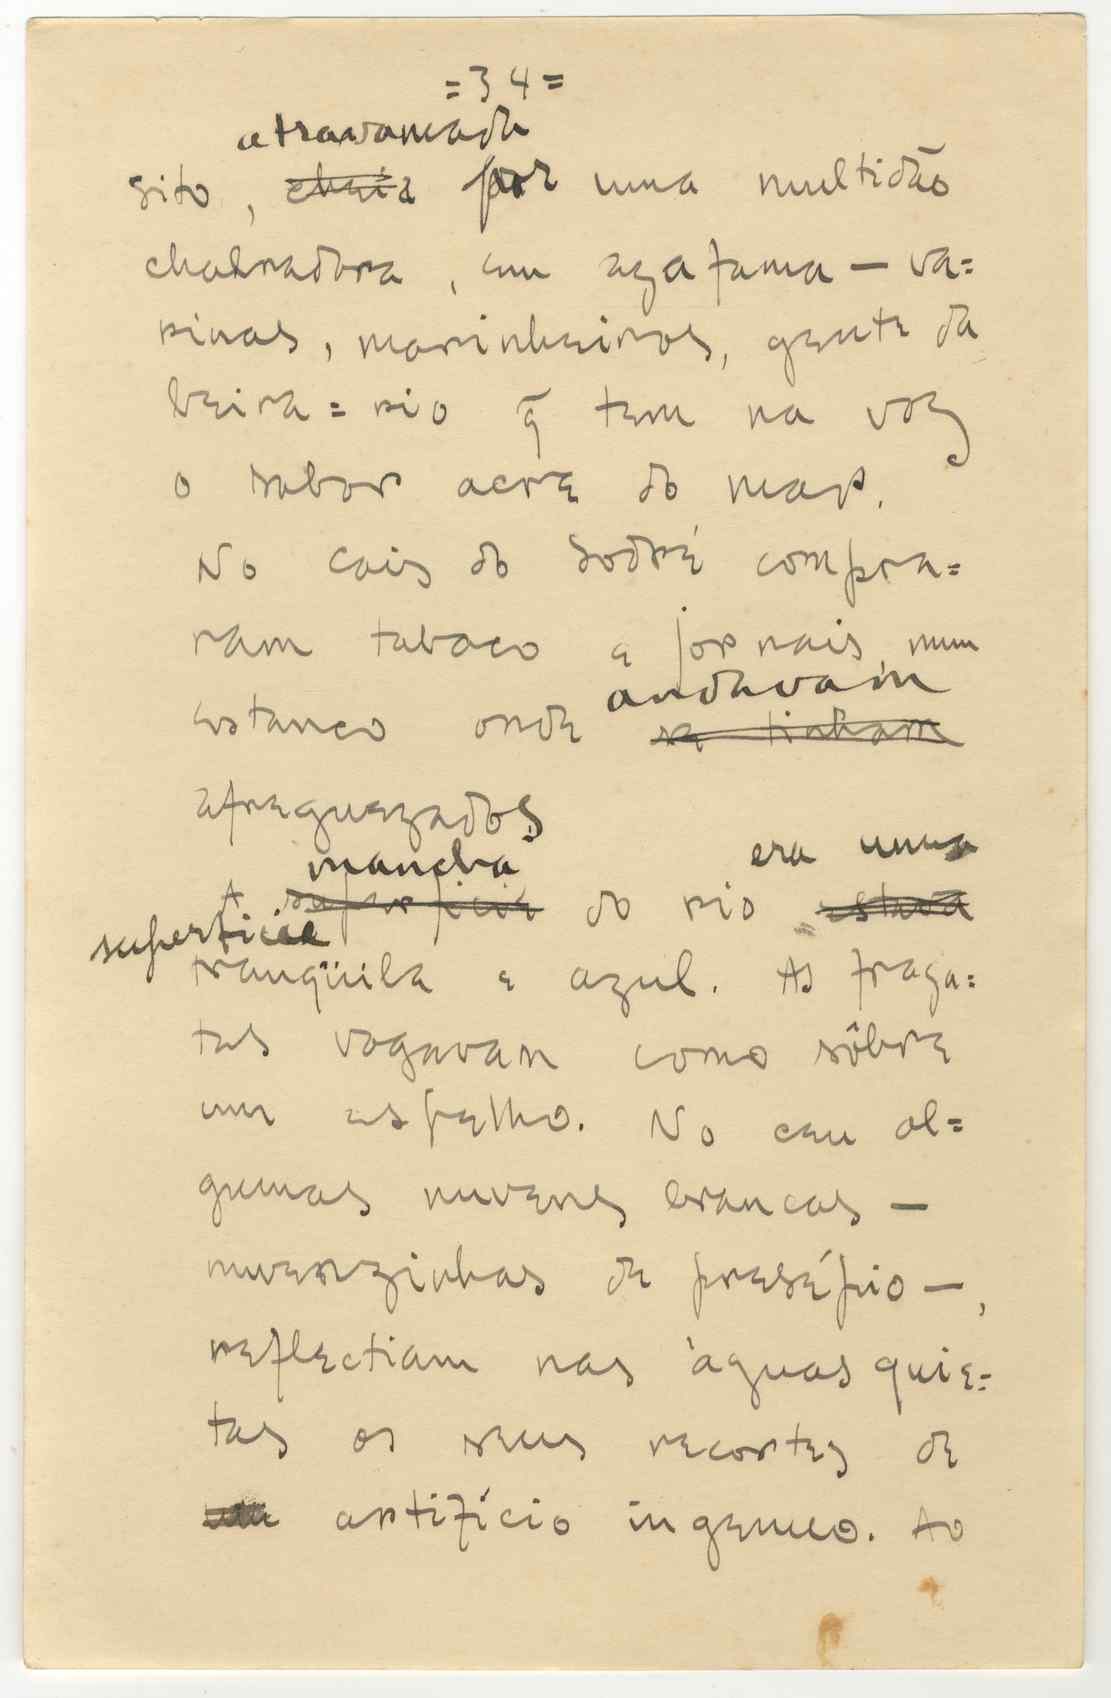 =34=
atravancada
sito, cheia por uma multidão
chalradora, em azafama — va=
rinas, marinheiros, gente da
beira=rio q̃ tem na voz
o sabor acre do mar.
No Cais do Sodré compra=
ram tabaco e jornais num
andavam
estanco onde se tinham
afreguezados
mancha era uma
A superficie do rio estava
superficie
tranqüila e azul. As fraga=
tas vogavam como sôbre
um espelho. No ceu al=
gumas nuvens brancas —
nuvenzinhas de preséfio —,
reflectiam nas àguas quie=
tas os seus recortes de
artifício ingenuo. Ao